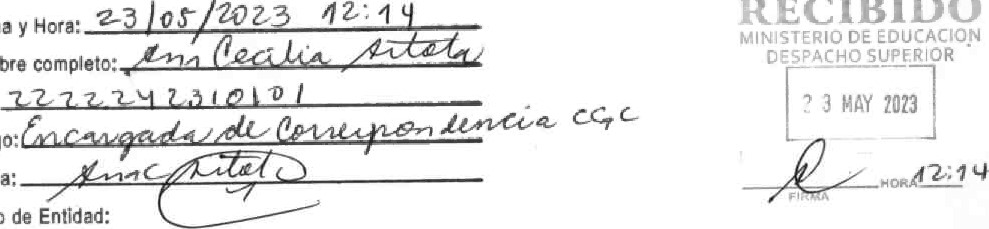 a y Hora: 23/05/2023 12:14
bre completo: Ana Cecilia Sitota
2222242310101
o: Encargada de Correspondencia CGC
a: Ana C Sitoto
o de Entidad:
RECIBIDO
MINISTERIO DE EDUCACION
DESPACHO SUPERIOR
23 MAY 2023
HORA 12:14
FIRMA